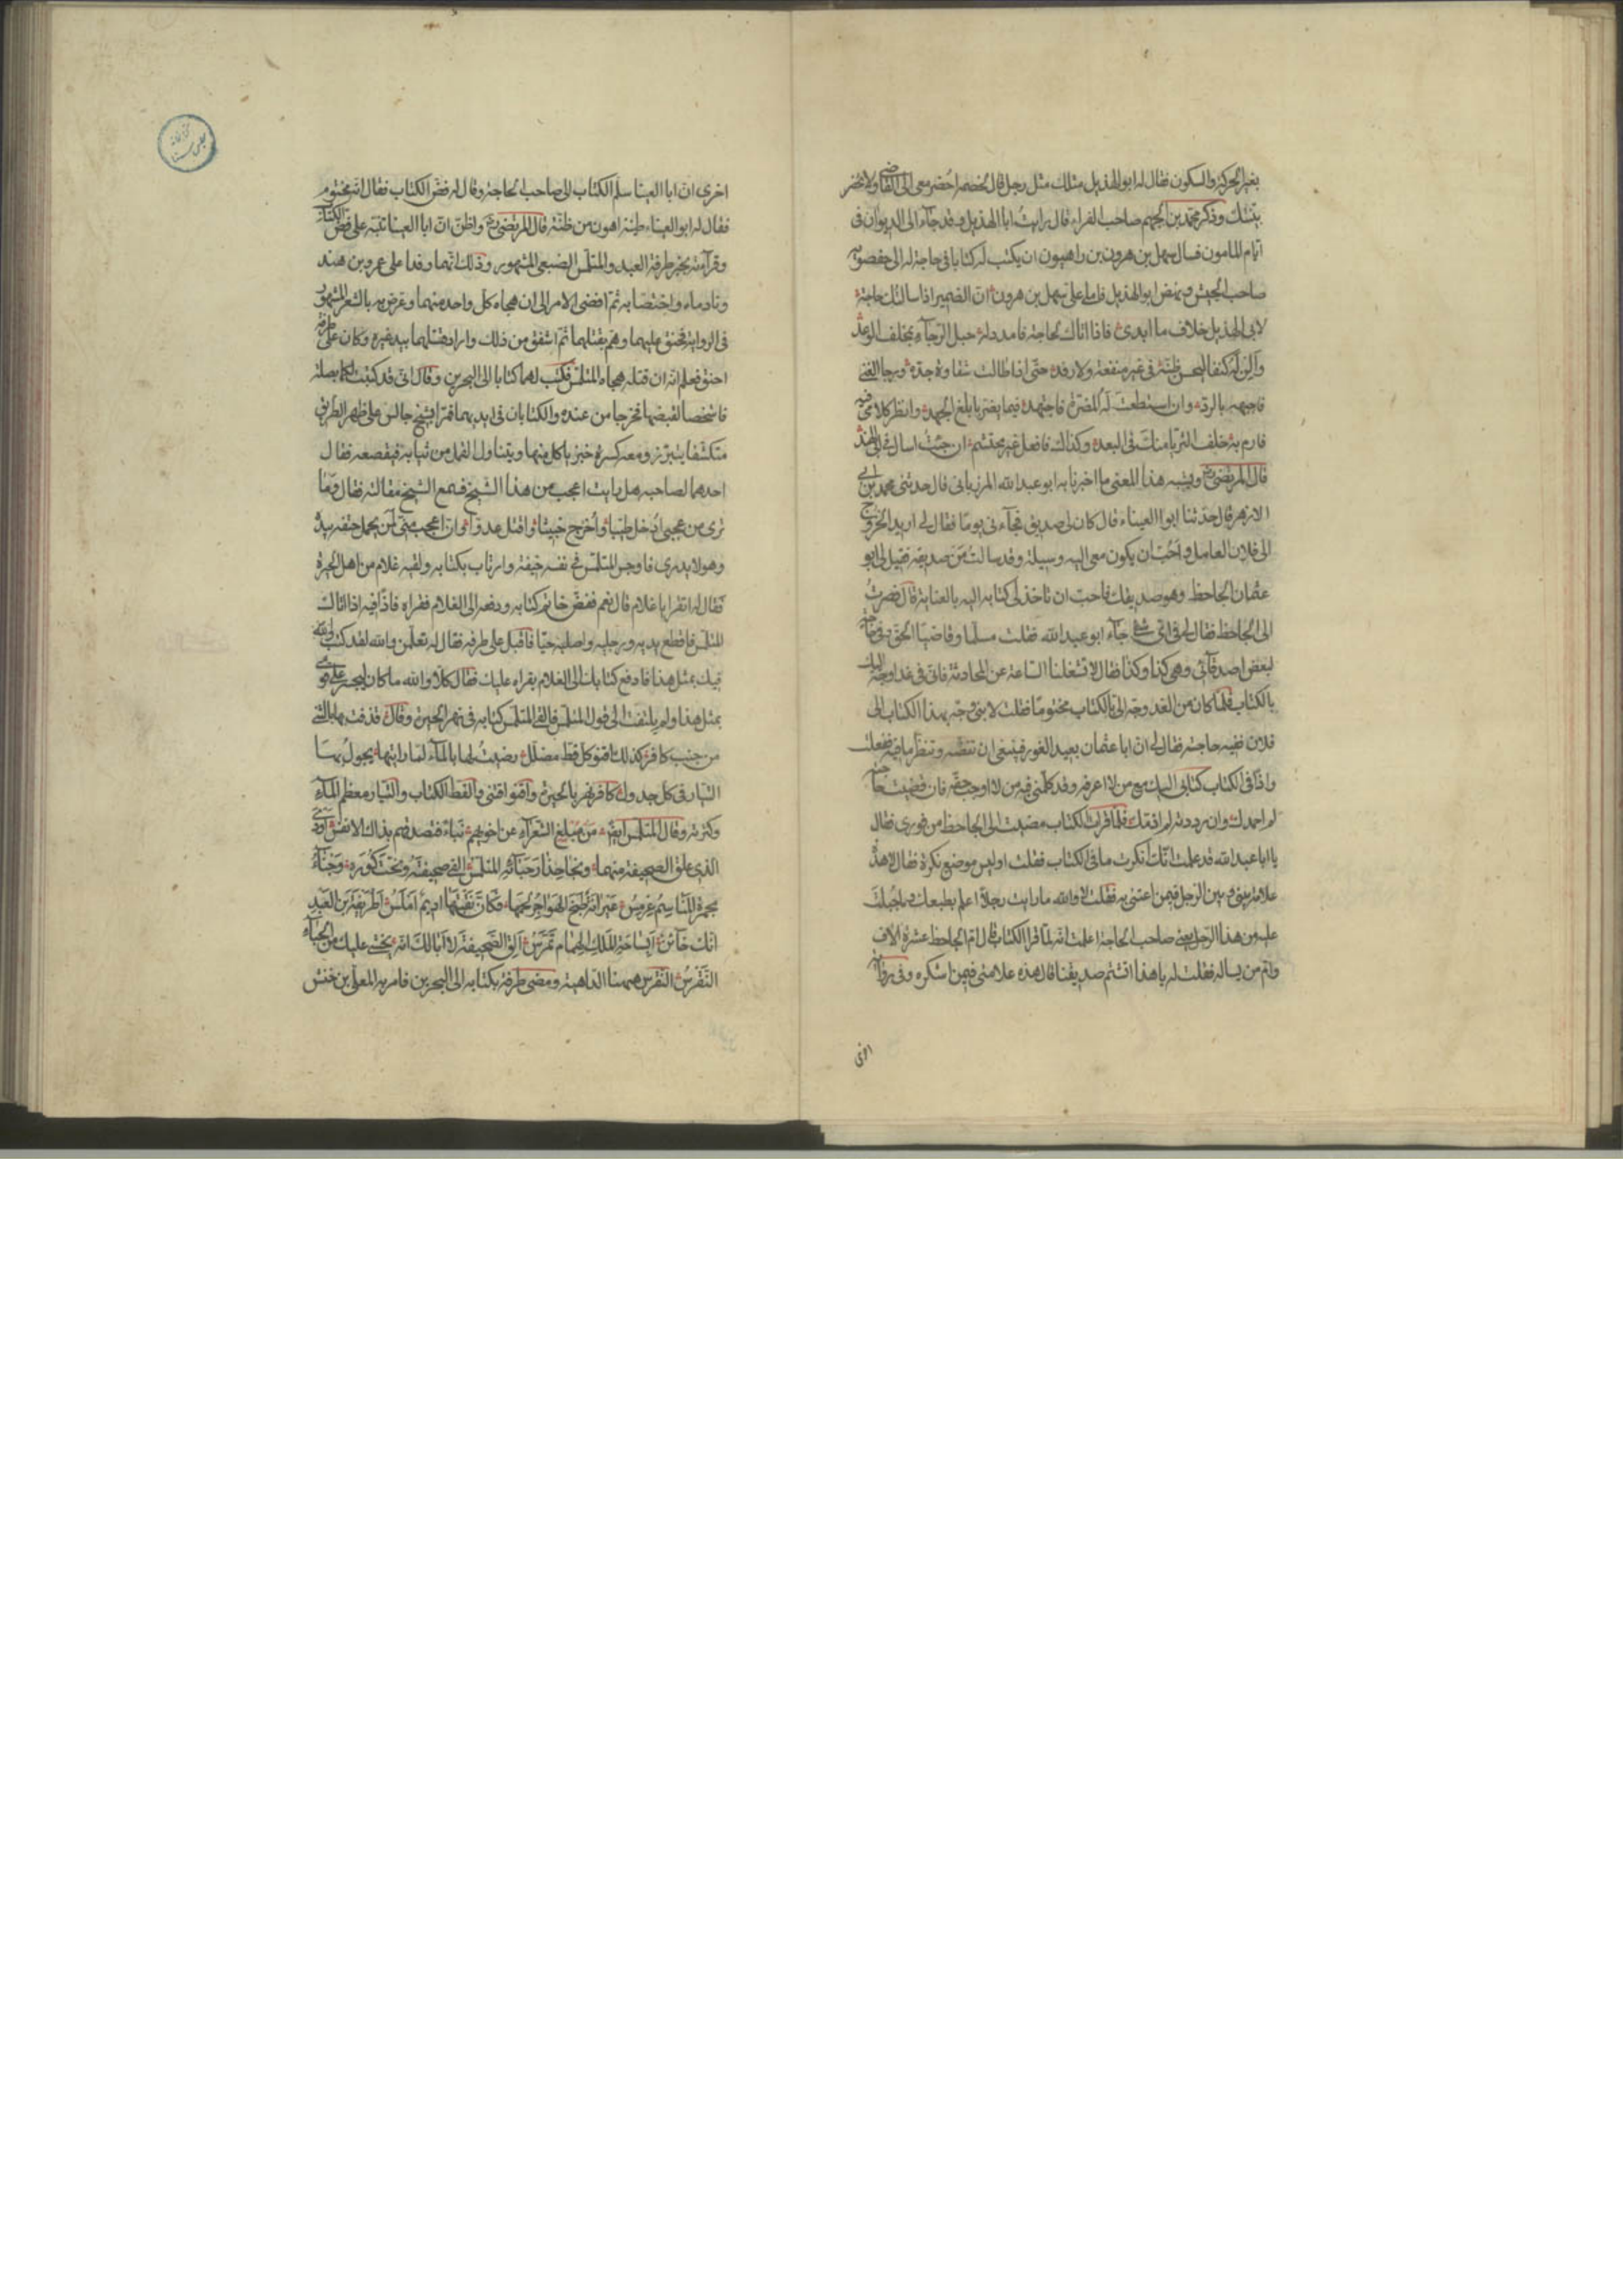 بغير الحركة والسكون فقال له ابو الهذيل مثلك مثل رجل قال لخصمه احضر معى الى القاضى ولا تحضر
بيّنتك وذكر محمد بن الجهم صاحب الفراء قال رايتُ ابا الهذيل وقد جآء الى الديوان فى
ايّام المامون فسال سهل بن هرون بن راهبون ان يكتب له كتابا فى حاجة له الى حفصويه
صاحب الجيش ونهض ابو الهذيل فاملى علىّ سهل بن هرون انّ الضمير اذا سالتك حاجة
لابى الهذيل خلاف ما ابدى فاذا اتاك لحاجة فامدد له حبل الرّجآء بمخلف الوعد
وألِن له كنفا ليحسن ظنّه فى غير منفعة ولا رفد حتّى اذا طالت شقاوة جدّه ورجا الغنى
فاجبهه بالردّ وان استطعت له المضرّة فاجتهد فيما يضرّ بابلغ الجهد وانظر كلامى فيه
فارم به خلف الثريّا منك فى البعد وكذاك فافعل غير محتشم ان جئتُ اسال فى ابى الهذيل
قال المرتضى رض ويشبه هذا المعنى ما اخبرنا به ابو عبد الله المرزبانى قال حدثنى محمد بن ابى
الازهر قال حدّثنا ابوا العيناء قال كان لى صديق فجآءنى يومًا فقال لى اريد الخروج
الى فلان العامل واحبّ ان يكون معى اليه وسيلة وقد سالت مَن صديقه فقيل لى ابو
عثمان الجاحظ وهو صديقك فاحبّ ان تاخذ لى كتابه اليه بالعناية قال فصرتُ
الى الجاحظ فقال لى فى اىّ شئ جآء ابو عبد الله فقلت مسلّما وقاضيًا الحقّ وفى حاجة
لبعض اصدقآئى وهى كذا وكذا فقال لا تشغلنا السّاعة عن المحادثة فانى فى غد اوجّه اليك
بالكتاب فلمّا كان من الغد وجّه الىّ بالكتاب مختومًا فقلت لابنى وجّه بهذا الكتاب الى
فلان ففيه حاجته فقال لى انّ ابا عثمان بعيد الغور فينبغى ان تفضّه وتنظر ما فيه ففعلت
واذا فى الكتاب كتابى اليك مع من لا اعرفه وقد كلّمنى فيه من لا اوجب حقّه فان قضيت حاجته
لم احمدك وان رددته لم اذمّك فلمّا قرات الكتاب مضيت الى الجاحظ من فورى فقال
يا ابا عبد الله قد علمت انّك انكرت ما فى الكتاب فقلت اوليس موضع نكرة فقال لا هذه
علامة بينى وبين الرّجل فيمن اعتنى به فقلت لا والله ما رايت رجلا اعلم بطبعك وما جُبلت
عليه من هذا الرجل يعنى صاحب الحاجة اعلمت انّه لمّا قرا الكتاب قال امّ الجاحظ عشرة الاف
وامّ من يساله فقلت له يا هذا اتشتم صديقنا قال هذه علامتى فيمن اشكره وفى رواية
اخرى
اخرى انّ ابا العينا سلّم الكتاب الى صاحب الحاجة وقال له فضّ الكتاب فقال انّه مختوم
فقال له ابو العيناء طينة اهون من ظنّة قال المرتضى رض واظنّ انّ ابا العينا نبّه على فضّ الكتاب
وقرآءته بخبر طرفة العبد والمتلمّس الضبعى المشهور وذلك انّهما وفدا على عمرو بن هند
ونادماه واختصّا به ثمّ افضى الامر الى ان هجاه كلّ واحد منهما وعرّض به بالشعر المشهور
فى الرواية فحنق عليهما وهمّ بقتلهما ثمّ اشفق من ذلك واراد قتلهما بيد غيره وكان على طرفة
احنق فعلم انّه ان قتله هجاه المتلمّس فكتب لهما كتابا الى البحرين وقال انّى قد كتبت لكما بصلة
فاشخصا لقبضها فخرجا من عنده والكتابان فى ايديهما فمرّا بشيخ جالس على ظهر الطريق
متكشّفا يتبرّز ومعه كسرة خبز ياكل منها ويتناول القمل من ثيابه فيقصعه فقال
احدهما لصاحبه هل رايت اعجب من هذا الشيخ فسمع الشيخ مقالته فقال وما
ترى من عجبى اُدخل طيّبا واُخرج خبيثا واقتل عدوّا وانّ اعجب منّى لَمن يحمل حتفه بيده
وهو لا يدرى فاوجس المتلمّس فى نفسه خيفة وارتاب بكتابه ولقيه غلام من اهل الحيرة
فقال له اتقرا يا غلام قال نعم ففضّ خاتم كتابه ودفعه الى الغلام فقراه فاذا فيه اذا اتاك
المتلمّس فاقطع يديه ورجليه واصلبه حيّا فاقبل على طرفة فقال له تعلّمن والله لقد كتب
فيك بمثل هذا فادفع كتابك الى الغلام يقراه عليك فقال كلّا والله ما كان ليجسر علىّ قومى
بمثل هذا ولم يلتفت الى قول المتلمّس فالقى المتلمّس كتابه فى نهر الحيرة وقال قذفت بها بالثنى
من جنب كافر كذلك اقنو كلّ قطّ مضلّل رضيتُ لها بالمآء لمّا رايتها يجولُ بها
التيّار فى كلّ جدول كافر نهر بالحيرة واقنو اقتنى والقطّ الكتاب والتيّار معظم المآء
وكثرته وقال المتلمّس ايضًا مَن مُبلِغ الشعرآءِ عن اخويهم نَبأً فتصدقهم بذاك الانفسُ اودى
الذى علق الصحيفة منهما ونجا حذار حبآئه المتلمّس القى صحيفته ونجّت كُورَه وجنآءُ
مجمرة المناسم عِرمِسُ عَيرانة طبخ الهواجر لحمها فكانّ نقبتها اديمٌ املسُ اَطُرَيفةُ بن العبد
انّك حآئن ابساحة الملك الهمام تمرّسُ اَلقِ الصحيفة لا ابا لك انّه يخشى عليك من الحبآء
النّقرسُ النقرس هيهنا الدّاهية ومضى طرفة بكتابه الى البحرين فامر به المعلّى بن حنش